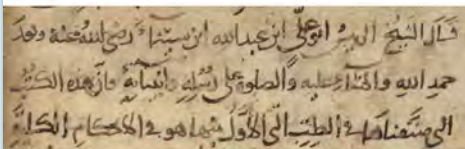 قال الشيخ الرئيس ابو علي ابن عبد الله ابن سيناء رضي الله عنه وبعد
حمد الله والثناء عليه والصلوة على رسله وانبيائه فان هذه الكتب
التي صنفناها في الطب التي الاول منها هو في الاحكام الكلية